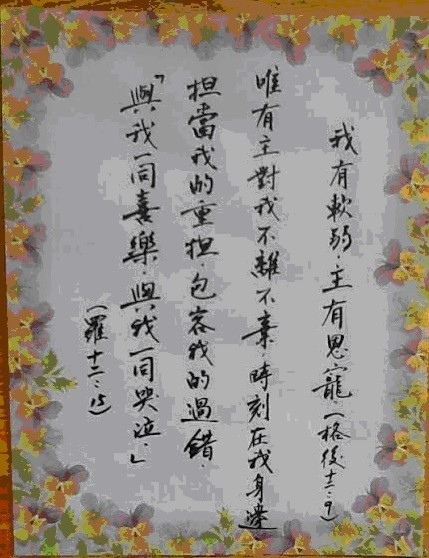 我有軟弱．主有恩寵．（格後十二．9）
唯有主對我不離不棄．時刻在我身邊
担當我的重担．包容我的過錯．
「與我一同喜樂．與我一同哭泣．」
（羅十二．15）